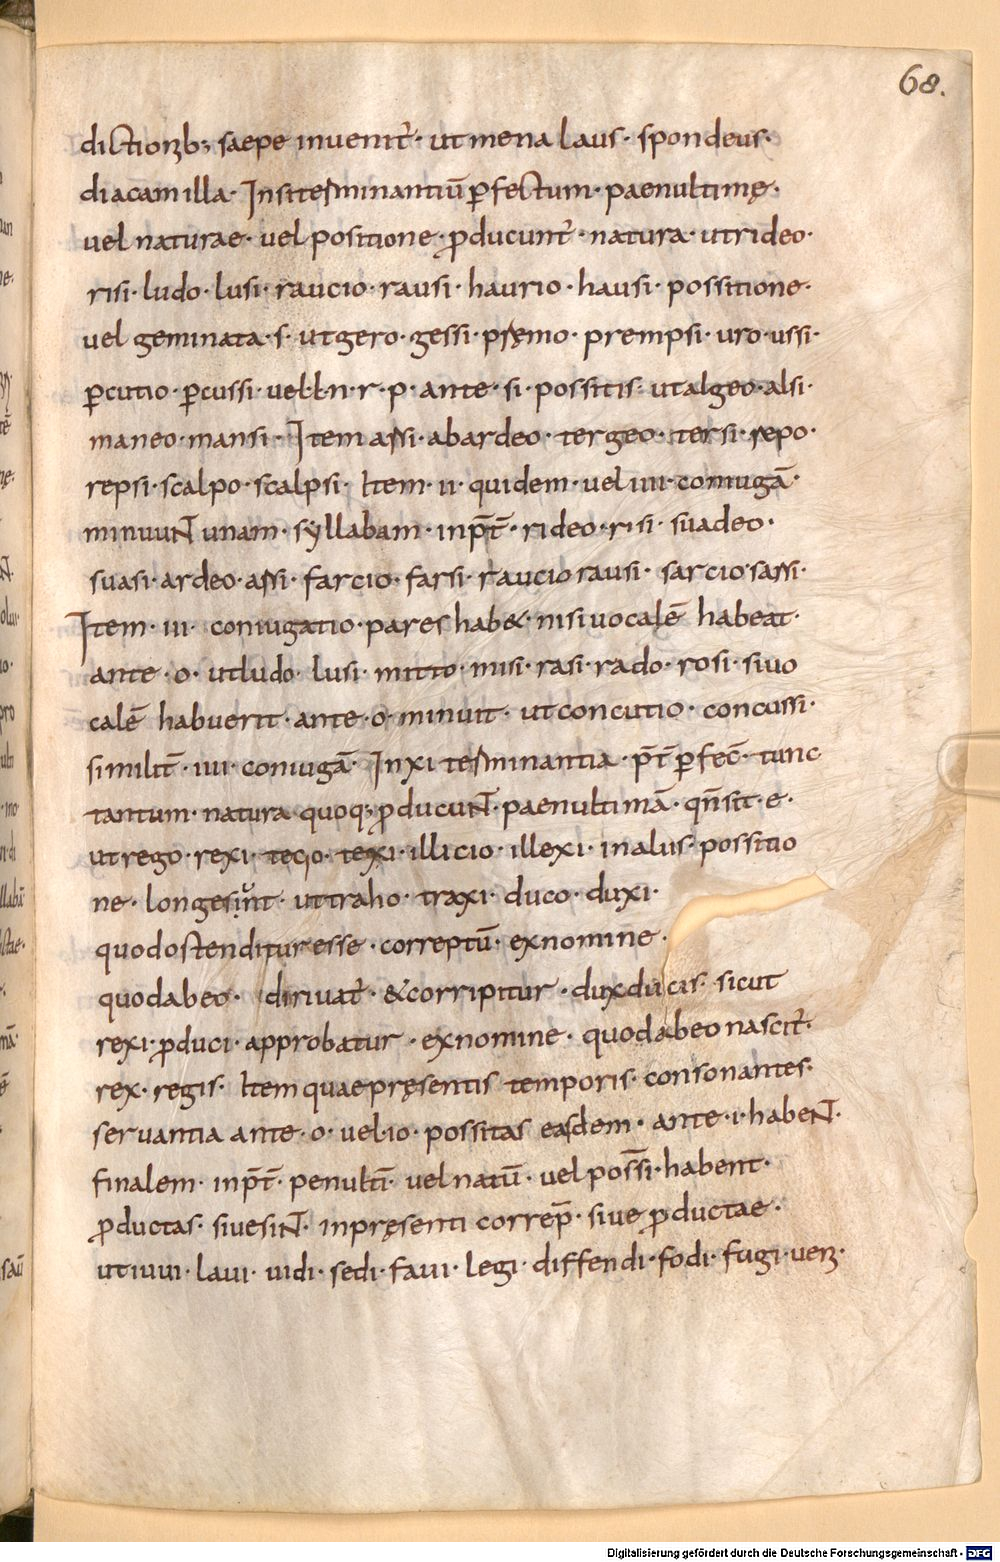 68.
dictionib; saepe inuenit̃· ut mena laus· spondeus·
diacam illa· In si terminantiū p̄fectum· paenultimę·
uel naturae· uel positione· p̄ducunt̃· natura· ut rideo·
risi· ludo· lusi· raucio· rausi· haurio· hausi· possitione·
uel geminata· s· ut gero· gessi· pręmo· prempsi· uro· ussi·
p̄cutio· p̄cussi· uel· l· n· r· p· ante· si· possitis· ut algeo· alsi·
maneo· mansi· Item assi· ab ardeo· tergeo· tersi· repo·
repsi· scalpo· scalpsi· Item· ii· quidem· uel iiii· coniugā·
minuunt unam· syllabam· inp̄t̄· rideo· risi· suadeo·
suasi· ardeo· assi· farcio· farsi· raucio rausi· sarcio· sassi·
Item· iii· coniugatio· pares hab&· nisi uocalē habeat·
ante· o· ut ludo· lusi· mitto· misi· rasi· rado· rosi· si uo
calē habuerit· ante· o· minuit· ut concutio· concussi·
similit̄· iiii· coniugā· In xi terminantia· p̄t̄ p̄fec̄· tunc
tantum· natura quoq; p̄ducunt· paenultimā· qn̄ sit· e·
ut rego· rexi· tego· texi· illicio· illexi· in alus· possitio
ne· longe sunt· ut traho· traxi· duco· duxi·
quod ostenditur esse· correptū· ex nomine·
quod ab eo· diriuat̃· & corripitur· dux ducis· sicut
rexi· p̄duci· approbatur· ex nomine· quod ab eo nascit̃·
rex· regis· Item quae pręsentis temporis· consonantes·
seruantia ante· o· uel· io· possitas easdem· ante· i· habent·
finalem· inp̄t̄· penultī· uel natū· uel possī· habent·
p̄ductas· siue sint· in pręsenti correp̄· siue p̄ductae·
ut iuui· laui· uidi· sedi· faui· legi· diffendi· fodi· fugi· ueni·
Digitalisierung gefördert durch die Deutsche Forschungsgemeinschaft - DFG